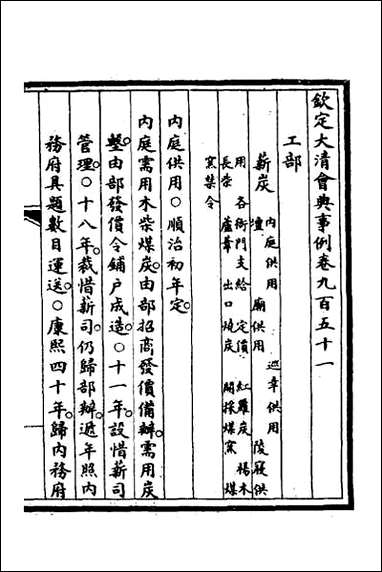 欽定大清會典事例卷九百五十一
工部
薪炭
內庭供用 巡幸供用
壇廟供用 陵寢供
用 各衙門支給 定價 紅羅炭 楊木
長柴 蘆葦 出口燒炭 開採煤窯 煤
窯禁令
內庭供用○順治初年定
內庭需用木柴煤炭由部招商發價備辦需用炭
墼由部發價令鋪戶成造○十一年設惜薪司
管理○十八年裁惜薪司仍歸部辦遞年照內
務府具題數目運送○康熙四十年歸內務府